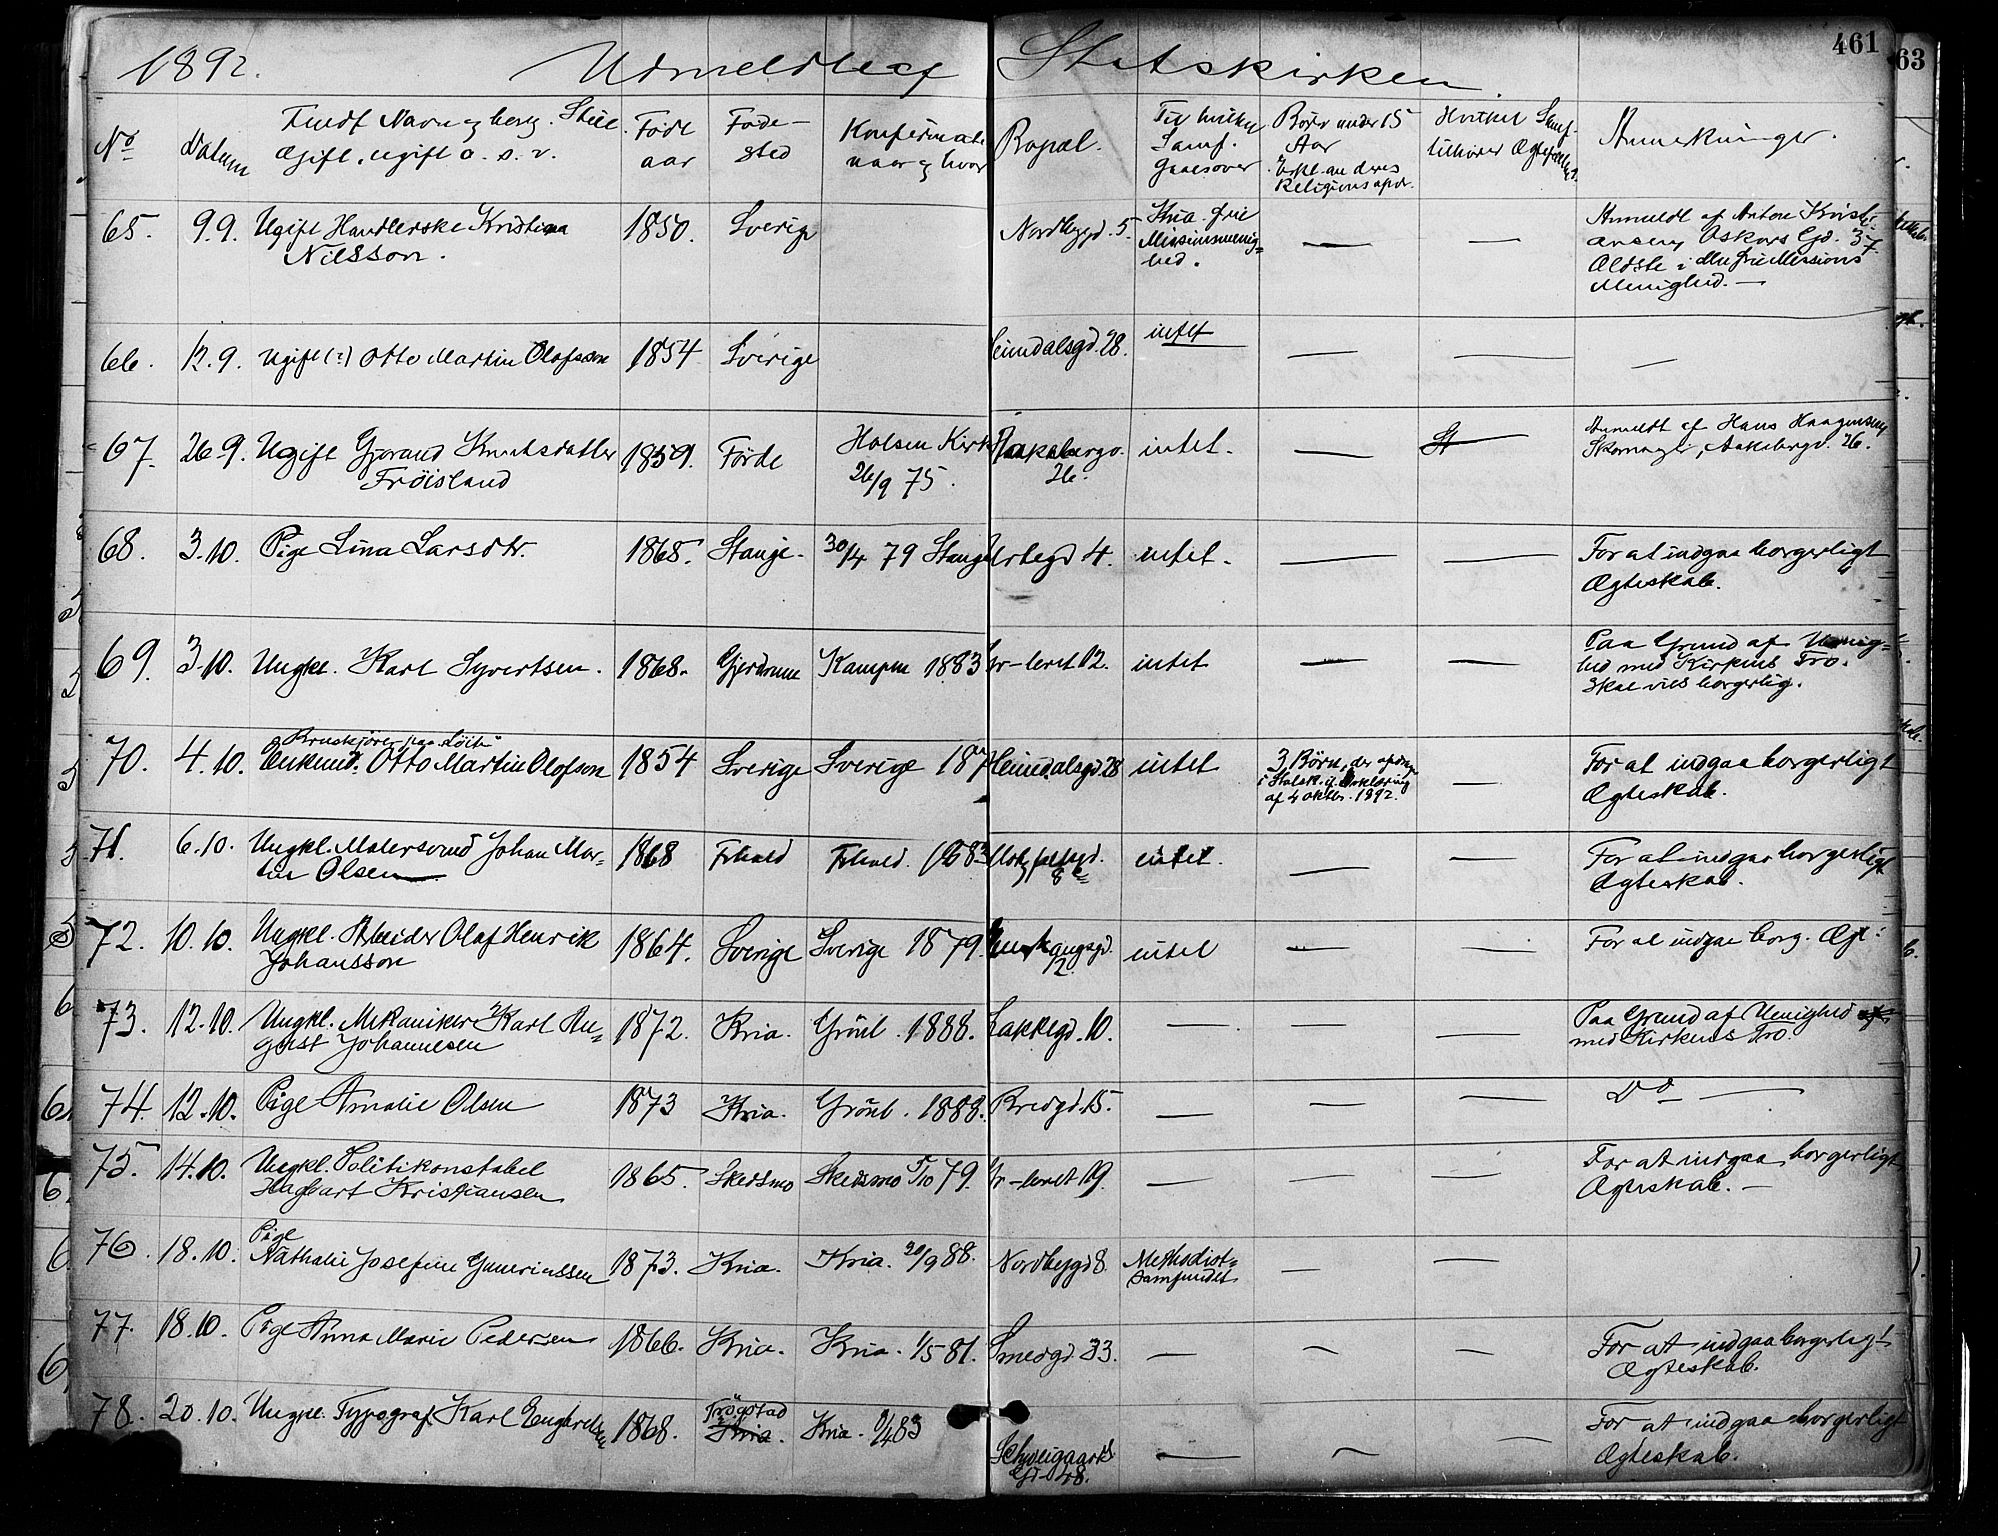 461
63
1892. Udmeldte af Statskirken
No
Datum
Fuldt Navn og Stil.
Ægift, ugift o. s. v.
Føde
aar
Føde-
sted
Konfirmeret
naar og hvor
Bopæl.
Til hvilket
Samf.
gaaes over
Børn under 15
Aar
Erkl. an deres
Religions opdr.
Hvilket Samf.
tilhører Ægtefællen
Anmerkninger.
65. 9.9. Ugift Handlerske Kristina
Nilsson.
1850. Sverige
Nordbygd. 5.
Kria. frie
Missionsmenig=
hed.
— —
Anmeldt af Anton Kristi-
ansen Oskars Gd. 37
Ældste i den frie Missions
Menighed. —
66. 12.9. Ugift (?) Otto Martin Olafsson 1854 Sverige
Heimdalsgd. 28. intet — — —
67. 26.9. Ugift Gjørand Knutsdatter
Frøisland
1859. Førde
Holsen Kirke
26/9 75.
Aakebergv.
26.
intet. —
Anmeldt af Hans Haagensen
Skomager, Aakebergv. 26.
68. 3.10. Pige Lina Larsdtr. 1865. Stange. 30/4 79 Stange
gd 4. intet. — —
For at indgaa borgerligt
Ægteskab.
69. 3.10. Ungkl. Karl Syvertsen. 1868. Gjerdrum Kampen 1883
Gr-leret 12. intet — —
Paa Grund af Uenig=
hed med Kirkens Tro.
Skal vies borgerlig.
70. 4.10.
Enkmd. Otto Martin Olofson 1854 Sverige Sverige 187
Heimdalsgd. 28 intet
3 Børn, der opdrages
i Statsk. if. Erklæring
af 4 oktbr. 1892.
—
For at indgaa borgerligt
Ægteskab.
71. 6.10. Ungkl. Malersvend Johan Mar-
tin Olsen
1868 Frhald Frhald. 1883
8
intet. — —
For at indgaa borgerligt
Ægteskab.
72. 10.10. Ungkl. Arbeider Olaf Henrik
Johansson
1864. Sverige Sverige 1879.
12.
intet — —
For at indgaa borg. Ægt:
73. 12.10. Ungkl. Mekaniker Karl Au=
gust Johannesen
1872. Kria. Grønl. 1888. Lakkegd. 10. — — —
Paa Grund af Uenighed
med Kirkens Tro.
74. 12.10. Pige Amalie Olsen 1873 Kria. Grønl. 1888. Bredgd. 15. — — —
Do —
75. 14.10. Ungkl. Politikonstabel
Hagbart Kristiansen
1865. Skedsmo Skedsmo 5/10 79. Gr-leret 19. — — —
For at indgaa borgerligt
Ægteskab. —
76. 18.10. Pige
Nathalie Josefine Gunerinssen 1873. Kria. Kria. 30/9 88. Nordbygd 8.
Methodist=
samfundet
— —
77. 18.10. Pige Anna Marie Pedersen 1866. Kria. Kria. 1/5 81. Smedgd. 33. — — —
For at indgaa borgerligt
Ægteskab.
78. 20.10. Ungkl. Typograf Karl Engbretsen 1868.
Trøgstad
Kria.
Kria. 8/4 83
Schweigaards
Gd. 48.
— — —
For at indgaa borgerligt
Ægteskab.